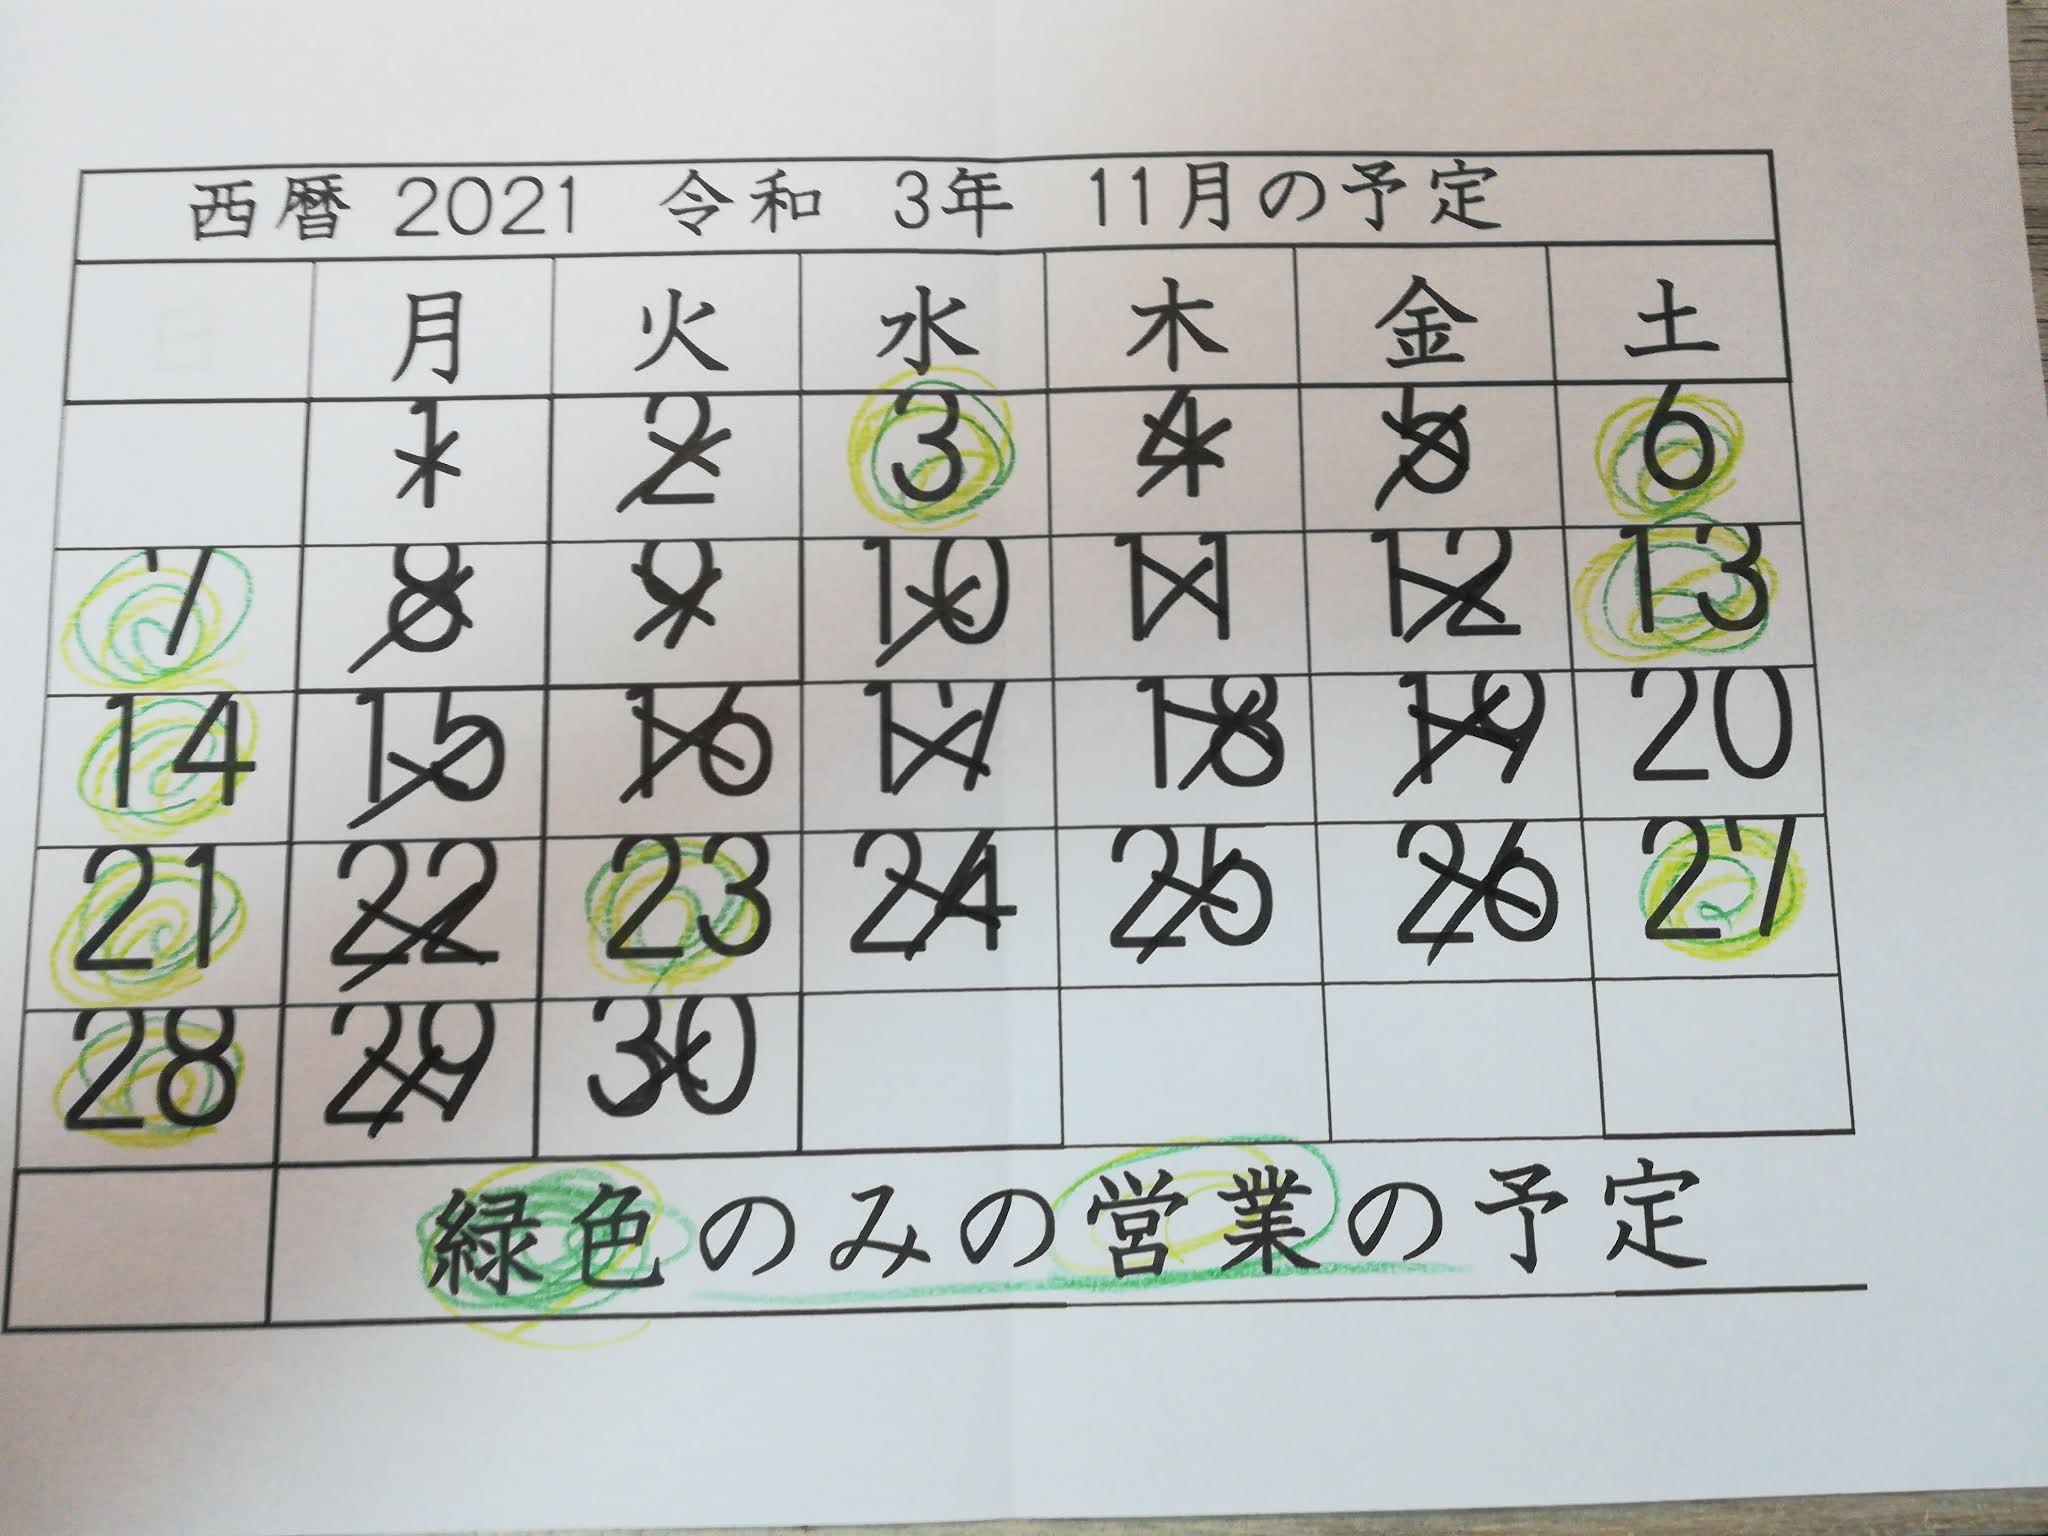 西暦 2021 令和 3年 11月の予定
日 月 火 水 木 金 土
1 2 3 4 5 6
7 8 9 10 11 12 13
14 15 16 17 18 19 20
21 22 23 24 25 26 27
28 29 30
緑色のみの営業の予定